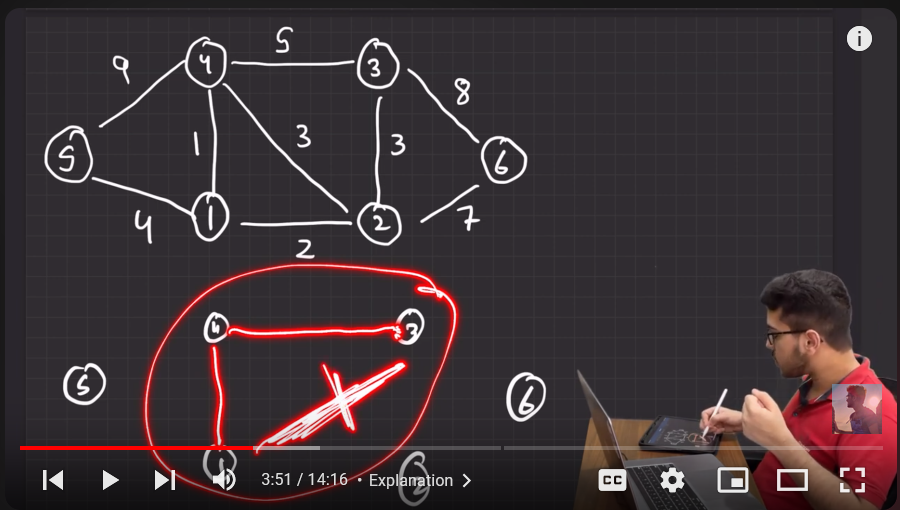 5
9
4
3
8
5
1
3
3
6
4
1
2
7
2
4
3
5
6
1
2
3:51 / 14:16 • Explanation
CC
i